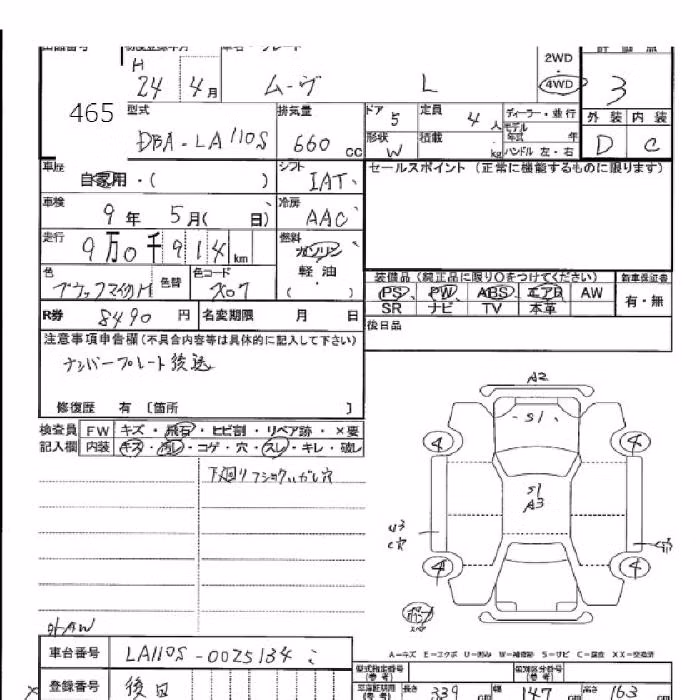 H
24 4月 ムーヴ L
2WD
4WD
3
465
型式 排気量 ドア 5 定員 4人 ディーラー・並行
モデル
年式 年
外装 内装
DBA-LA110S 660cc
形状 W 積載 kg ハンドル 左・右
D C
車歴 自家用・( )
シフト IAT
セールスポイント (正常に機能するものに限ります)
車検 9年 5月( 日)
冷房 AAC
走行 9万0千914km
燃料 ガソリン
軽・油
( )
色 色替 色コード X07
装備品 (純正品に限り○をつけてください) 新車保証書
PS PW ABS エアB AW 有・無
SR ナビ TV 本革
R券 8490円 名変期限 月 日
後日品
注意事項申告欄(不具合内容等は具体的に記入して下さい)
ナンバープレート後送
修復歴 有 〔箇所 〕
検査員 FW キズ・飛石・ヒビ割・リペア跡・×要
記入欄 内装 キズ・汚れ・コゲ・穴・スレ・キレ・破レ
A2
S1
4 4
S1
A3
U3
4 4
外AW
車台番号 LA110S-0025134
A=キズ E=エクボ U=凹み W=補修跡 S=サビ C=腐食 XX=交換済
型式指定番号
(参考)
類別区分番号
(参考)
登録番号 後日
長さ 339cm 幅 147cm 高さ 163cm